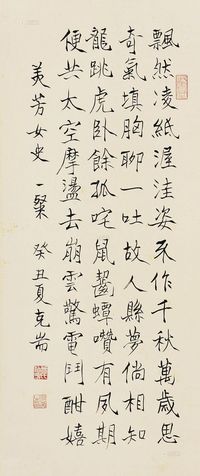 飄然凌紙渥洼姿不作千秋萬歲思
奇氣填胸聊一吐故人縣夢倘相知
龍跳虎臥餘孤咤鼠齧蟫囋有夙期
便共太空摩盪去崩雲驚電鬥酣嬉
美芳女史一粲
癸丑夏克耑